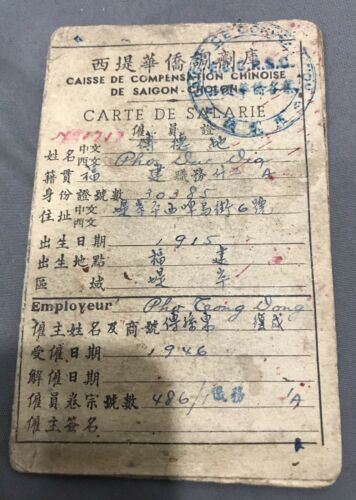 西堤華僑調劑庫
CAISSE DE COMPENSATION CHINOISE
DE SAIGON-CHOLON
CARTE DE SALARIE
僱員證
No 1717
姓名 中文 傅德地
西文 Pho Duc Dia
籍貫 福建 職務 什 A
身份證號數 30385
住址 中文 堤岸 街6號
西文
出生日期 1915
出生地點 福建
區域 堤岸
Employeur Pho Trong Dong
僱主姓名及商號 傅 東 復成
受僱日期 1946
解僱日期
僱員卷宗號數 486/ 退務 A
僱主簽名